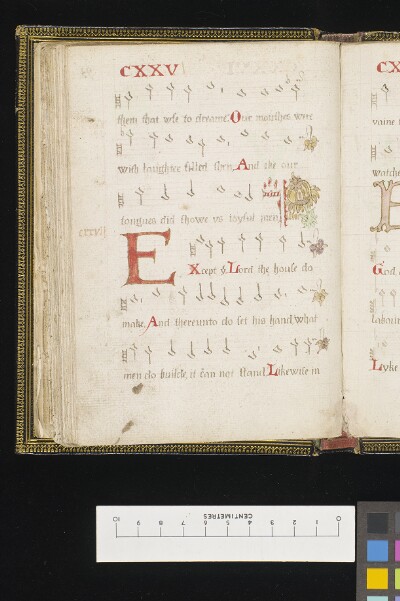 CXXV
them that vse to dreame. Our mouthes were
with laughter filled then, And eke our
tongues did showe vs ioyful men.
Except ye Lord the house do
make, And thereunto do set his hand, what
men do builde, it can not stand. Likewise in
CX
vaine
watche
God
labour
Lyke
CENTIMETRES
10 9 8 7 6 5 4 3 2 1 0